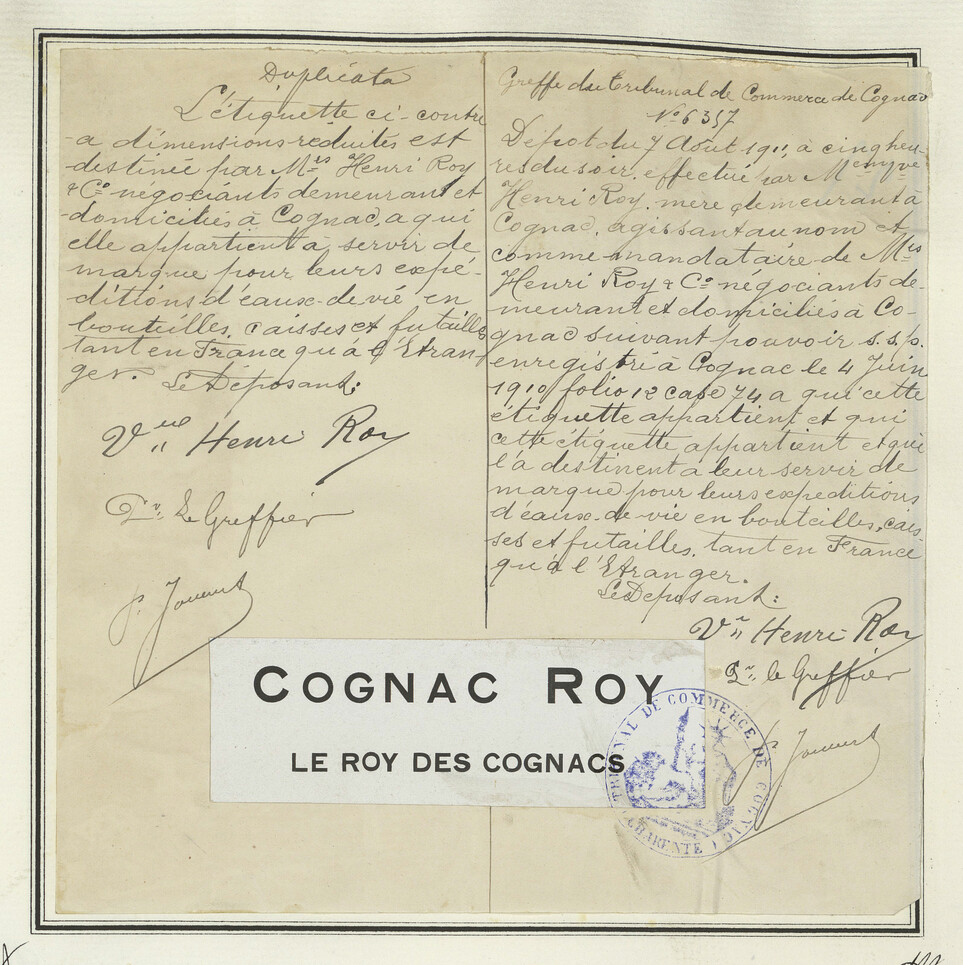 Duplicata
L'étiquette ci-contre
-a dimensions réduites est
destinée par M.rs Henri Roy
& C.o négociants demeurant et
domiciliés à Cognac, a qui
elle appartient a servir de
marque pour leurs expé-
ditions d'eaux-de-vie en
bouteilles, caisses et futailles
tant en France qu'à l'Etran-
ger.
Le Déposant:
V.ve Henri Roy
Pr. Le Greffier
Greffe du Tribunal de Commerce de Cognac
No 6357
Dépot du 7 Août 1911, a cinq heu-
res du soir, effectué par M
Henri Roy, mère demeurant à
Cognac, agissant au nom et
comme mandataire de M.rs
Henri Roy & C.o négociants de-
meurant et domiciliés à Co-
gnac suivant pouvoir s.s.p.
enregistré à Cognac le 4 Juin
1910 folio 12 case 74 a qui cette
étiquette appartient et qui
cette étiquette appartient et qui
l'a destinent a leur servir de
marque pour leurs expeditions
d'eaux-de-vie en bouteilles, cais-
ses et futailles, tant en France
qu'à l'Etranger.
Le Déposant:
V.ve Henri Roy
Pr. le Greffier
COGNAC ROY
LE ROY DES COGNACS
TRIBUNAL DE COMMERCE DE COGNAC
CHARENTE